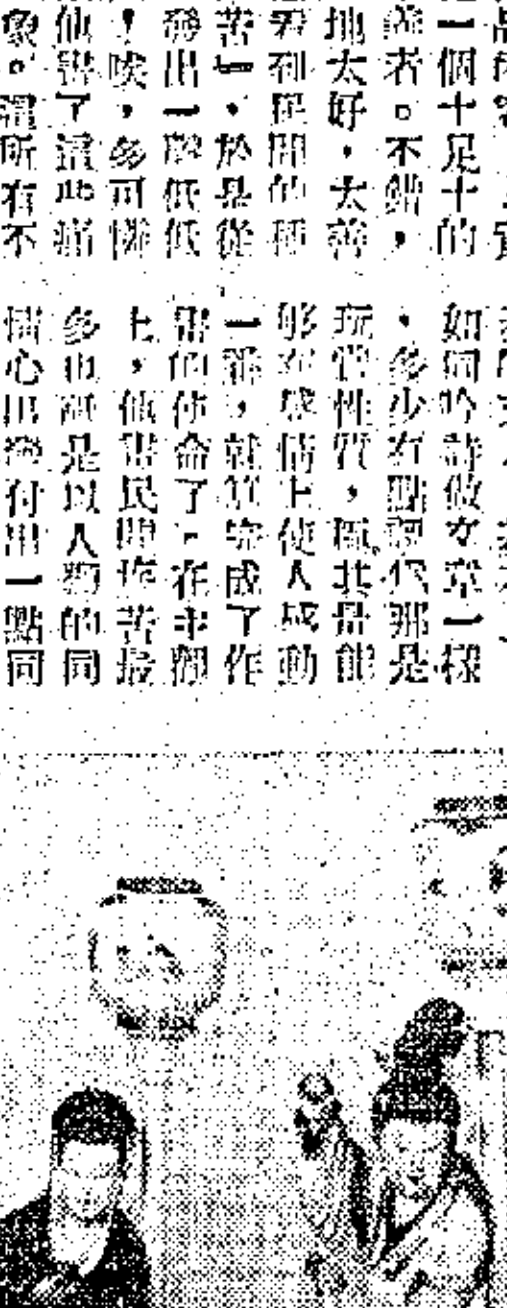 一個十足十的
善者。不錯，
地太好，太善
看到民間的種
苦，於是從
發出一聲低低
！唉，多可憐
他畫了這些痛
象。這所有不
如同吟詩做文章一樣
，多少有點那是
玩賞性質，其是能
够在感情上使人感動
一番，就算完成了作
畫的使命了。在主觀
上，他畫民間疾苦最
多也祇是以人類的同
情心出發付出一點同